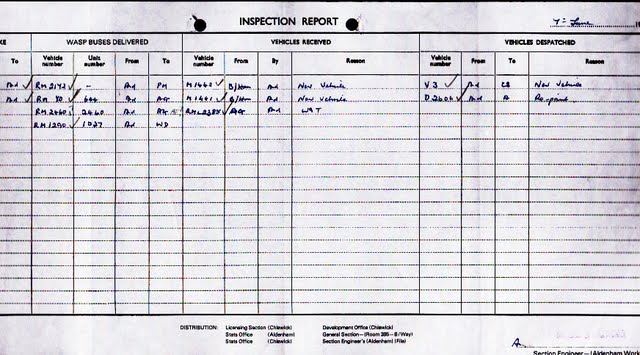 INSPECTION REPORT 7th June
KE WASP BUSES DELIVERED VEHICLES RECEIVED VEHICLES DESPATCHED
To Vehicle number Unit number From To Vehicle number From By Reason Vehicle number From To Reason
Ad RM 2172 - Ad PM M1440 B/Ham Ad New Vehicle V3 Ad CS New Vehicle
Ad RM 80 644 Ad M1441 Ad New Vehicle D2604 Ad A Repaint.
RM2460 2460 Ad AG Ad
RM1290 1027 Ad WD
DISTRIBUTION: Licensing Section (Chiswick) Development Office (Chiswick)
Stats Office (Aldenham) General Section—(Room 395—B/Way)
Stats Office (Chiswick) Section Engineer's (Aldenham) (File)
A.
Section Engineer—(Aldenham Work